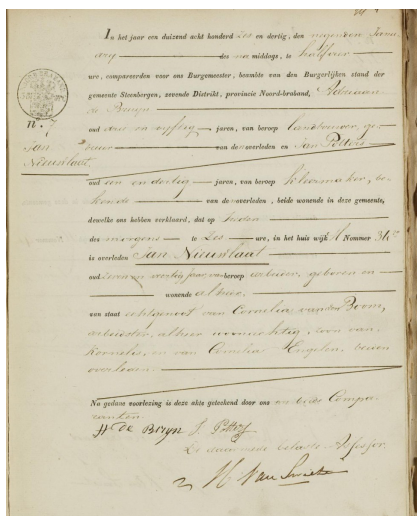 In het jaar een duizend acht honderd zes en dertig, den negentien
des na middags, te half vier
ure, compareerden voor ons Burgemeester, beambte van den Burgerlijken stand der
gemeente Steenbergen, zevende Distrikt, provincie Noord-braband, Adriaan
de Bruyn
oud drie en vijftig jaren, van beroep landbouwer, ge-
buur van den overleden en Jan Potters
N.
Jan
Nieuwlaat
oud een en dertig jaren, van beroep kleermaker, be-
kende van den overleden, beide wonende in deze gemeente,
dewelke ons hebben verklaard, dat op heden
des morgens te zes ure, in het huis wijk A Nommer
is overleden Jan Nieuwlaat
oud en veertig jaar, van beroep arbeider, geboren en
wonende alhier,
van staat echtgenoot van Cornelia van den Boom,
arbeidster, alhier woonachtig, zoon van
Kornelis, en van Cornelia Engelen, beiden
overleden.
Na gedane voorlezing is deze akte geteekend door ons en beide Compa-
ranten
A De Bruyn J. Potters
De daartoe belaste Assessor.
H Van